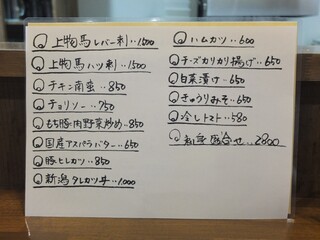 上物馬レバー刺‥1500
上物馬ハツ刺‥1500
チキン南蛮‥850
チョリソー‥750
もち豚肉野菜炒め‥850
国産アスパラバター‥650
豚ヒレカツ‥850
新潟タレカツ丼‥1,000
ハムカツ‥600
チーズカリカリ揚げ‥650
白菜漬け‥650
きゅうりみそ‥650
冷しトマト‥580
刺身盛合せ‥2800